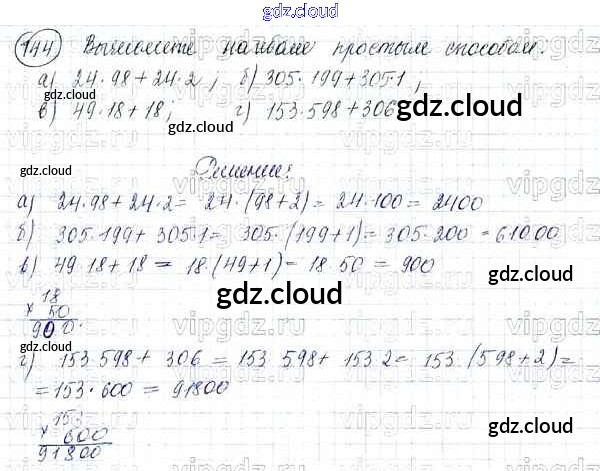 gdz.cloud
144 Вычислите наиболее простым способом:
gdz.cloud
а) 24·98+24·2; б) 305·199+305·1;
в) 49·18+18; г) 153·598+306
gdz.cloud
gdz.cloud
gdz.cloud
Решение:
gdz.cloud
а) 24·98+24·2= 24·(98+2)= 24·100= 2400
б) 305·199+305·1= 305·(199+1)= 305·200 =61000
в) 49·18+18 = 18·(49+1)= 18·50 = 900
gdz.cloud
18
× 50
900.
gdz.cloud
gdz.cloud
г) 153 598+ 306 = 153 598+ 153 2= 153 (598+2)=
=153·600 = 91800
gdz.cloud
153
× 600
91800
gdz.cloud